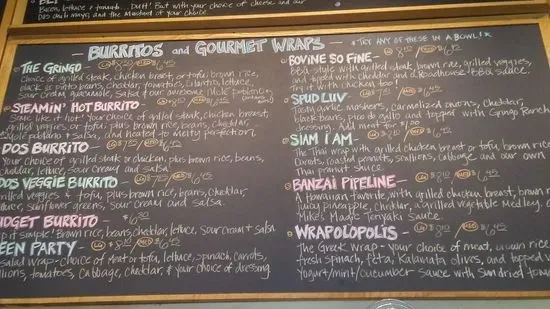 Bacon, lettuce & tomato... Duh! But with your choice of cheese and our
Dos chili mayo, and the Mustard of your choice.
BURRITOS and GOURMET WRAPS
* TRY ANY OF THESE IN A BOWL! *
THE GRINGO
Choice of grilled steak, chicken breast, or tofu, brown rice,
black or pinto beans, cheddar, tomatoes, cilantro, lettuce,
sour cream, guacamole, salsa & our awesome
STEAMIN' HOT BURRITO
Some like it hot! Your choice of grilled steak, chicken breast,
grilled veggies or tofu, plus brown rice, beans, cheddar,
& salsa, and heated to melty perfection.
DOS BURRITO
Your choice of grilled steak or chicken, plus brown rice, beans,
cheddar, lettuce, sour cream and salsa
DOS VEGGIE BURRITO
grilled veggies & tofu, plus brown rice, beans, cheddar,
lettuce, sunflower greens, sour cream and salsa.
UDGET BURRITO - $6.30
p it simple! Brown rice, beans, cheddar, lettuce, sour cream & salsa
EEN PARTY
salad wrap - choice of meat or tofu, lettuce, spinach, carrots,
lions, tomatoes, cabbage, cheddar, & your choice of dressing.
BOVINE SO FINE
BBQ style with grilled steak, brown rice, grilled veggies,
and topped with cheddar and a Roadhouse BBQ sauce.
Try it with chicken too!
SPUD LUV
Yukon gold mashers, carmelized onions, cheddar,
black beans, pico de gallo and topped with Gringo Ranch
dressing. Add meat for
SIAM I AM
The Thai wrap with grilled chicken breast or tofu, brown rice
carrots, roasted peanuts, scallions, cabbage and our own
Thai peanut sauce.
BANZAI PIPELINE
A Hawaiian favorite, with grilled chicken breast, brown r
juicy pineapple, cheddar, & grilled vegetable medley.
Mike's Magic Teriyaki Sauce.
WRAPOLOPOLIS
The Greek wrap - your choice of meat, brown rice
fresh spinach, feta, Kalamata olives, and topped w
yogurt/mint/cucumber sauce with sundried tomat